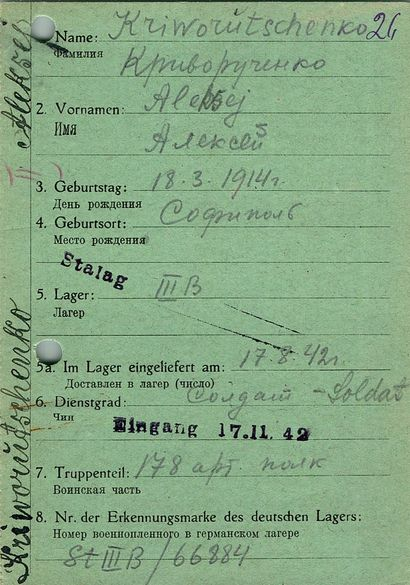 Name: Kriworutschenko 26
Фамилия Криворученко
2. Vornamen: Aleksej
Имя Алексей
3. Geburtstag: 18.3.1914г.
День рождения
4. Geburtsort: Софиполь
Место рождения
Stalag
5. Lager: III B
Лагер
5a. Im Lager eingeliefert am: 17.8.42г.
Доставлен в лагер (число)
6. Dienstgrad: Солдат - Soldat
Чин
Eingang 17.11.42
7. Truppenteil: 178 арт. полк
Воинская часть
8. Nr. der Erkennungsmarke des deutschen Lagers:
Номер военнопленного в германском лагере
St III B / 66884
Kriworutschenko Aleksej